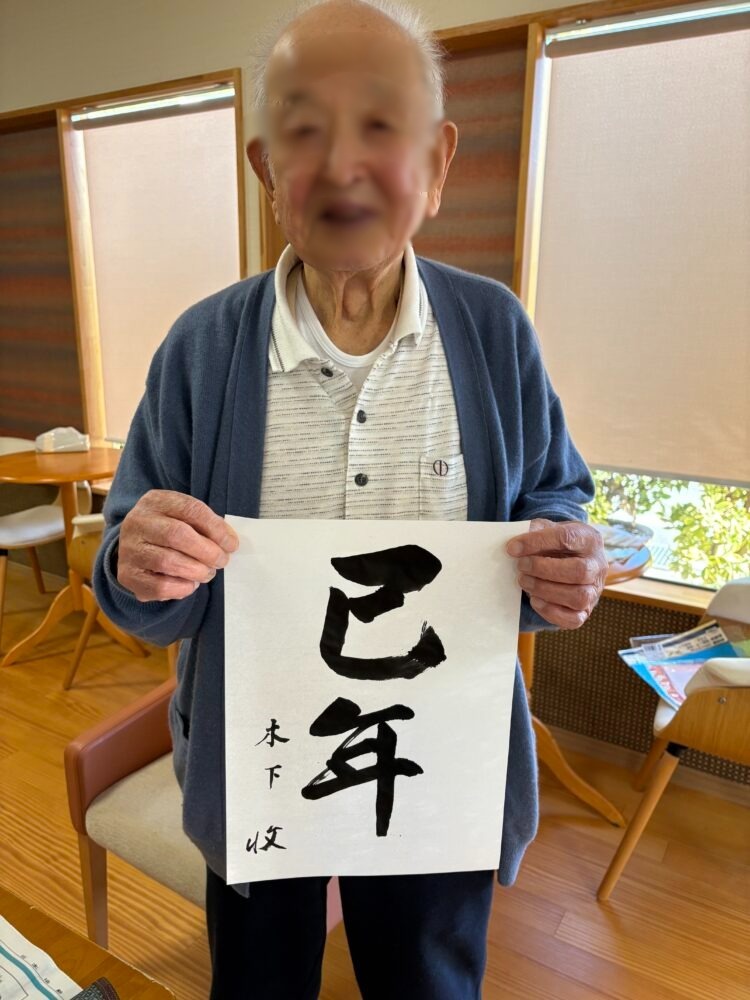 巳年
木下
收